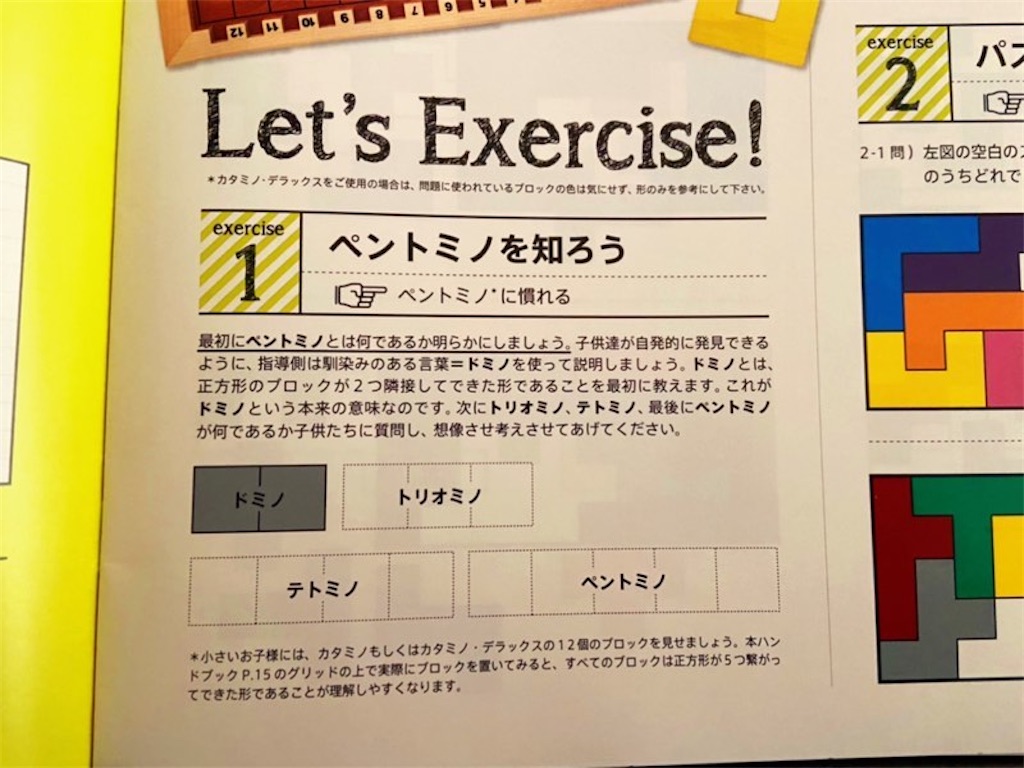 12 11 10 9 8 7 6 5
Let's Exercise!
＊カタミノ・デラックスをご使用の場合は、問題に使われているブロックの色は気にせず、形のみを参考にして下さい。
exercise
1
ペントミノを知ろう
ペントミノ*に慣れる
最初にペントミノとは何であるか明らかにしましょう。子供達が自発的に発見できる
ように、指導側は馴染みのある言葉＝ドミノを使って説明しましょう。ドミノとは、
正方形のブロックが２つ隣接してできた形であることを最初に教えます。これが
ドミノという本来の意味なのです。次にトリオミノ、テトミノ、最後にペントミノ
が何であるか子供たちに質問し、想像させ考えさせてあげてください。
ドミノ
トリオミノ
テトミノ
ペントミノ
＊小さいお子様には、カタミノもしくはカタミノ・デラックスの１２個のブロックを見せましょう。本ハン
ドブック P.15 のグリッドの上で実際にブロックを置いてみると、すべてのブロックは正方形が５つ繋がっ
てできた形であることが理解しやすくなります。
exercise
2
2-1 問）左図の空白の
のうちどれで